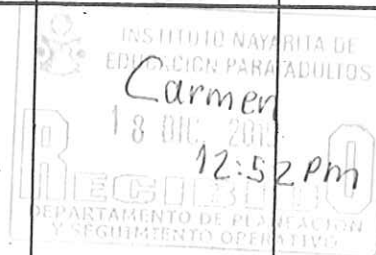 INSTITUTO NAYARITA DE
EDUCACION PARA ADULTOS
Carmen
18 DIC.
12:52 pm
RECIBIDO
DEPARTAMENTO DE PLANEACION
Y SEGUIMIENTO OPERATIVO